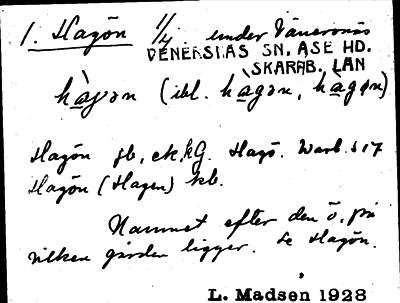 1. Hagön 1/4 under Vänersnäs
VENERSNÄS SN. ÅSE HD.
SKARAB. LÄN
hàgɘn (ibl. hàgɘn, hàgøn)
Hagön jb, ek, kG. Hagö. Warb. s 17
Hagön (Hagen) kb.
Namnet efter den ö, på
vilken gården ligger. Se Hagön.
L. Madsen 1928